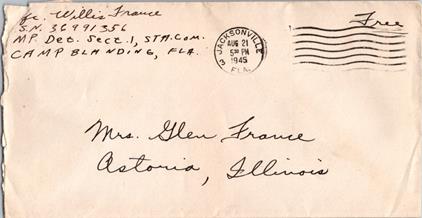 Willis France
S.N. 36991356
MP. Det. Sect. 1, STA. COM.
CAMP BLANDING, FLA.
Free
JACKSONVILLE
3
AUG 21
5 30 PM
1945
FLA.
Mrs. Glen France
Astoria, Illinois